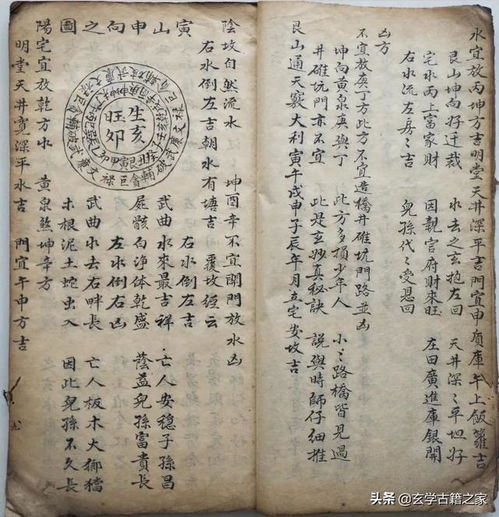 水宜放丙坤方吉明堂天井門宜申 廣庫午上飯籮吉
艮山坤向好迁裁 水去之玄抱左回 天井深〻平坦好
宅水丙上富家財 因親官府財來旺 左田廣進庫銀開
右水流左房〻吉 兒孫代〻受恩回
凶方
不宜放 丁方此方不宜造橋井碓坑門路並凶
坤向黃泉 與丁 此方多損少年人 小〻路橋皆見過
井碓坑門亦不宜 此是玄妙真秘訣 説與時師仔細推
艮山通天竅大利寅午戌申子辰年月立宅安坟吉
陰坟自然流水 坤 辛不宜開門放水凶
右水倒左吉朝水有塘吉 覆坟經云
寅山申向之圖
生亥
旺卯
右水倒左吉
武曲水來最吉祥 亡人安穩子孫昌
屍骸白淨体乾盛 蔭益兒孫富貴長
左水倒右凶
武曲水去右畔長 亡人板木大
木根泥土蛇出入 因此兒孫不久長
陽宅宜放乾方水 黃泉煞坤辛方
明堂天井宜深平水吉 門宜午申方吉
头条 @玄学古籍之家